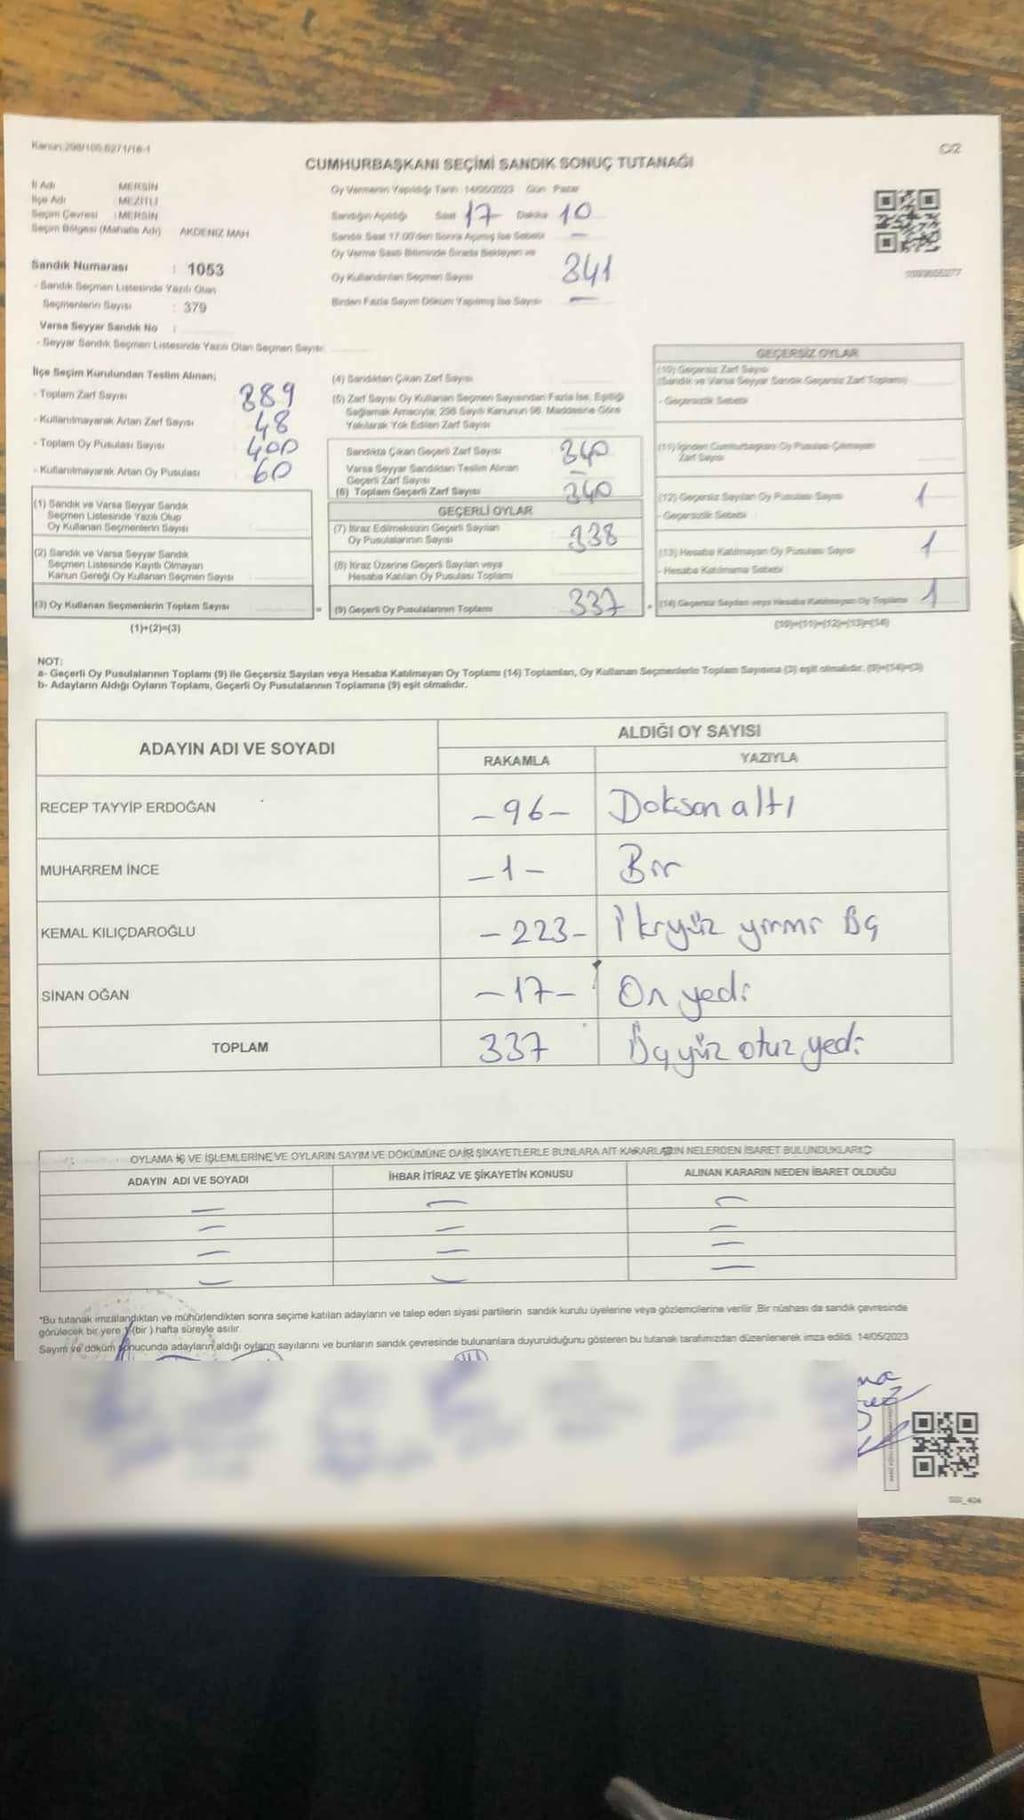 Kanun:298/105-6271/16-1
C/2
CUMHURBAŞKANI SEÇİMİ SANDIK SONUÇ TUTANAĞI
İl Adı MERSİN
İlçe Adı MEZİTLİ
Seçim Çevresi : MERSİN
Seçim Bölgesi (Mahalle Adı) AKDENİZ MAH
Sandık Numarası : 1053
- Sandık Seçmen Listesinde Yazılı Olan
Seçmenlerin Sayısı : 379
Varsa Seyyar Sandık No :
- Seyyar Sandık Seçmen Listesinde Yazılı Olan Seçmen Sayısı:
Oy Vermenin Yapıldığı Tarih 14/05/2023 Gün Pazar
Sandığın Açıldığı Saat 17 Dakika 10
Sandık Saat 17:00'den Sonra Açılmış İse Sebebi —
Oy Verme Saati Bitiminde Sırada Bekleyen ve
Oy Kullandırılan Seçmen Sayısı 341
Birden Fazla Sayım Döküm Yapılmış İse Sayısı —
İlçe Seçim Kurulundan Teslim Alınan;
- Toplam Zarf Sayısı 389
- Kullanılmayarak Artan Zarf Sayısı 48
- Toplam Oy Pusulası Sayısı 400
- Kullanılmayarak Artan Oy Pusulası 60
(1) Sandık ve Varsa Seyyar Sandık
Seçmen Listesinde Yazılı Olup
Oy Kullanan Seçmenlerin Sayısı
(2) Sandık ve Varsa Seyyar Sandık
Seçmen Listesinde Kayıtlı Olmayan
Kanun Gereği Oy Kullanan Seçmen Sayısı
(3) Oy Kullanan Seçmenlerin Toplam Sayısı =
(1)+(2)=(3)
(4) Sandıktan Çıkan Zarf Sayısı
(5) Zarf Sayısı Oy Kullanan Seçmen Sayısından Fazla İse, Eşitliği
Sağlamak Amacıyla; 298 Sayılı Kanunun 98. Maddesine Göre
Yakılarak Yok Edilen Zarf Sayısı
Sandıkta Çıkan Geçerli Zarf Sayısı 340
Varsa Seyyar Sandıktan Teslim Alınan
Geçerli Zarf Sayısı —
(6) Toplam Geçerli Zarf Sayısı 340
GEÇERLİ OYLAR
(7) İtiraz Edilmeksizin Geçerli Sayılan
Oy Pusulalarının Sayısı 338
(8) İtiraz Üzerine Geçerli Sayılan veya
Hesaba Katılan Oy Pusulası Toplamı
(9) Geçerli Oy Pusulalarının Toplamı 337 +
GEÇERSİZ OYLAR
(10) Geçersiz Zarf Sayısı
(Sandık ve Varsa Seyyar Sandık Geçersiz Zarf Toplamı)
- Geçersizlik Sebebi
(11) İçinden Cumhurbaşkanı Oy Pusulası Çıkmayan
Zarf Sayısı
(12) Geçersiz Sayılan Oy Pusulası Sayısı 1
- Geçersizlik Sebebi
(13) Hesaba Katılmayan Oy Pusulası Sayısı 1
- Hesaba Katılmama Sebebi
(14) Geçersiz Sayılan veya Hesaba Katılmayan Oy Toplamı 1
(10)+(11)+(12)+(13)=(14)
NOT:
a- Geçerli Oy Pusulalarının Toplamı (9) ile Geçersiz Sayılan veya Hesaba Katılmayan Oy Toplamı (14) Toplamları, Oy Kullanan Seçmenlerin Toplam Sayısına (3) eşit olmalıdır. (9)+(14)=(3)
b- Adayların Aldığı Oyların Toplamı, Geçerli Oy Pusulalarının Toplamına (9) eşit olmalıdır.
ADAYIN ADI VE SOYADI ALDIĞI OY SAYISI
RAKAMLA YAZIYLA
RECEP TAYYİP ERDOĞAN –96– Doksan altı
MUHARREM İNCE –1– Bir
KEMAL KILIÇDAROĞLU –223– İkiyüz yirmi üç
SİNAN OĞAN –17– On yedi
TOPLAM 337 Üçyüz otuz yedi
OYLAMA İŞ VE İŞLEMLERİNE VE OYLARIN SAYIM VE DÖKÜMÜNE DAİR ŞİKAYETLERLE BUNLARA AİT KARARLARIN NELERDEN İBARET BULUNDUKLARI
ADAYIN ADI VE SOYADI İHBAR İTİRAZ VE ŞİKAYETİN KONUSU ALINAN KARARIN NEDEN İBARET OLDUĞU
— — —
— — —
— — —
— — —
"Bu tutanak imzalandıktan ve mühürlendikten sonra seçime katılan adayların ve talep eden siyasi partilerin sandık kurulu üyelerine veya gözlemcilerine verilir. Bir nüshası da sandık çevresinde
görülecek bir yere 1 (bir) hafta süreyle asılır.
Sayım ve döküm sonucunda adayların aldığı oyların sayılarını ve bunların sandık çevresinde bulunanlara duyurulduğunu gösteren bu tutanak tarafımızdan düzenlenerek imza edildi. 14/05/2023